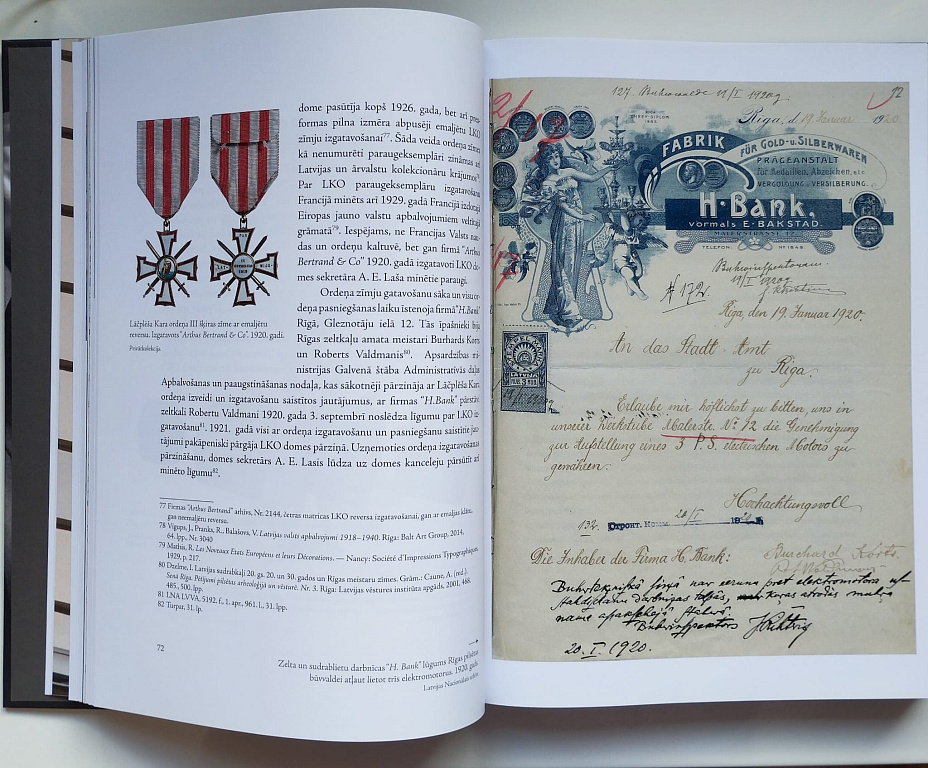 dome pasūtīja kopš 1926. gada, bet arī pres-
formas pilna izmēra abpusēji emaljētu LKO
zīmju izgatavošanai⁷⁷. Šāda veida ordeņa zīmes
kā nenumurēti paraugeksemplāri zināmas arī
Latvijas un ārvalstu kolekcionāru krājumos⁷⁸.
Par LKO paraugeksemplāru izgatavošanu
Francijā minēts arī 1929. gadā Francijā izdotajā
Eiropas jauno valstu apbalvojumiem veltītajā
grāmatā⁷⁹. Iespējams, ne Francijas Valsts nau-
das un ordeņu kaltuvē, bet gan firmā "Arthus
Bertrand & Co" 1920. gadā izgatavoti LKO do-
mes sekretāra A. E. Laša minētie paraugi.
Ordeņa zīmju gatavošanu sāka un visu or-
deņa pasniegšanas laiku īstenoja firmā "H. Bank"
Rīgā, Gleznotāju ielā 12. Tās īpašnieki bija
Rīgas zeltkaļu amata meistari Burhards Korts
un Roberts Valdmanis⁸⁰. Apsardzības mi-
nistrijas Galvenā štāba Administratīvās daļas
Apbalvošanas un paaugstināšanas nodaļa, kas sākotnēji pārzināja ar Lāčplēša Kara
ordeņa izveidi un izgatavošanu saistītos jautājumus, ar firmas "H. Bank" pārstāvi
zeltkali Robertu Valdmani 1920. gada 3. septembrī noslēdza līgumu par LKO iz-
gatavošanu⁸¹. 1921. gadā visi ar ordeņa izgatavošanu un pasniegšanu saistītie jau-
tājumi pakāpeniski pārgāja LKO domes pārziņā. Uzņemoties ordeņa izgatavošanas
pārzināšanu, domes sekretārs A. E. Lasis lūdza uz domes kanceleju pārsūtīt arī
minēto līgumu⁸².
Lāčplēša Kara ordeņa III šķiras zīme ar emaljētu
reversu. Izgatavots "Arthus Bertrand & Co". 1920. gadi.
Privātkolekcija
77 Firmas "Arthus Bertrand" arhīvs, Nr. 2144, četras matricas LKO reversa izgatavošanai, gan ar emaljas klātu,
gan neemaljētu reversu.
78 Vigups, J., Pranks, R., Balašovs, V. Latvijas valsts apbalvojumi 1918–1940. Rīga: Balt Art Group, 2014,
64. lpp., Nr. 3040
79 Mathis, R. Les Nouveaux Etats Européens et leurs Décorations. — Nancy: Société d'Impressions Typographiques,
1929, p. 217.
80 Dzelme, I. Latvijas sudrabkaļi 20. gs. 20. un 30. gados un Rīgas meistaru zīmes. Grām.: Caune, A. (red.).
Senā Rīga. Pētījumi pilsētas arheoloģijā un vēsturē. Nr. 3. Rīga: Latvijas vēstures institūta apgāds, 2001, 468.
485., 500. lpp.
81 LNA LVVA, 5192. f., 1. apr., 961. l., 31. lpp.
82 Turpat, 31. lp.
72
Zelta un sudrablietu darbnīcas "H. Bank" lūgums Rīgas pilsētas
būvvaldei atļaut lietot trīs elektromotorus. 1920. gads.
Latvijas Nacionālais arhīvs
127. Buhwwalde 19/I 1920 g.
92
Riga, d. 19. Januar 1920.
FABRIK
FÜR GOLD- u. SILBERWAREN
PRÄGEANSTALT
für Medaillen, Abzeichen, etc.
VERGOLDUNG u. VERSILBERUNG.
H. Bank,
vormals E. BAKSTAD.
MALERSTRASSE 12.
TELEFON № 1648
№ 172.
Riga, den 19. Januar 1920.
An das Stadt-Amt
zu Riga.
LATVIJA
Erlaube mir höflichst zu bitten, uns in
unserer Werkstube Malerstr. № 12 die Genehmigung
zur Aufstellung eines 3 P.S. electrischen Motors zu
gewähren.
Hochachtungsvoll
132. 20/I
Die Inhaber der Firma H. Bank:
Burchard Korts.
Buhwinspektors
20. I. 1920.